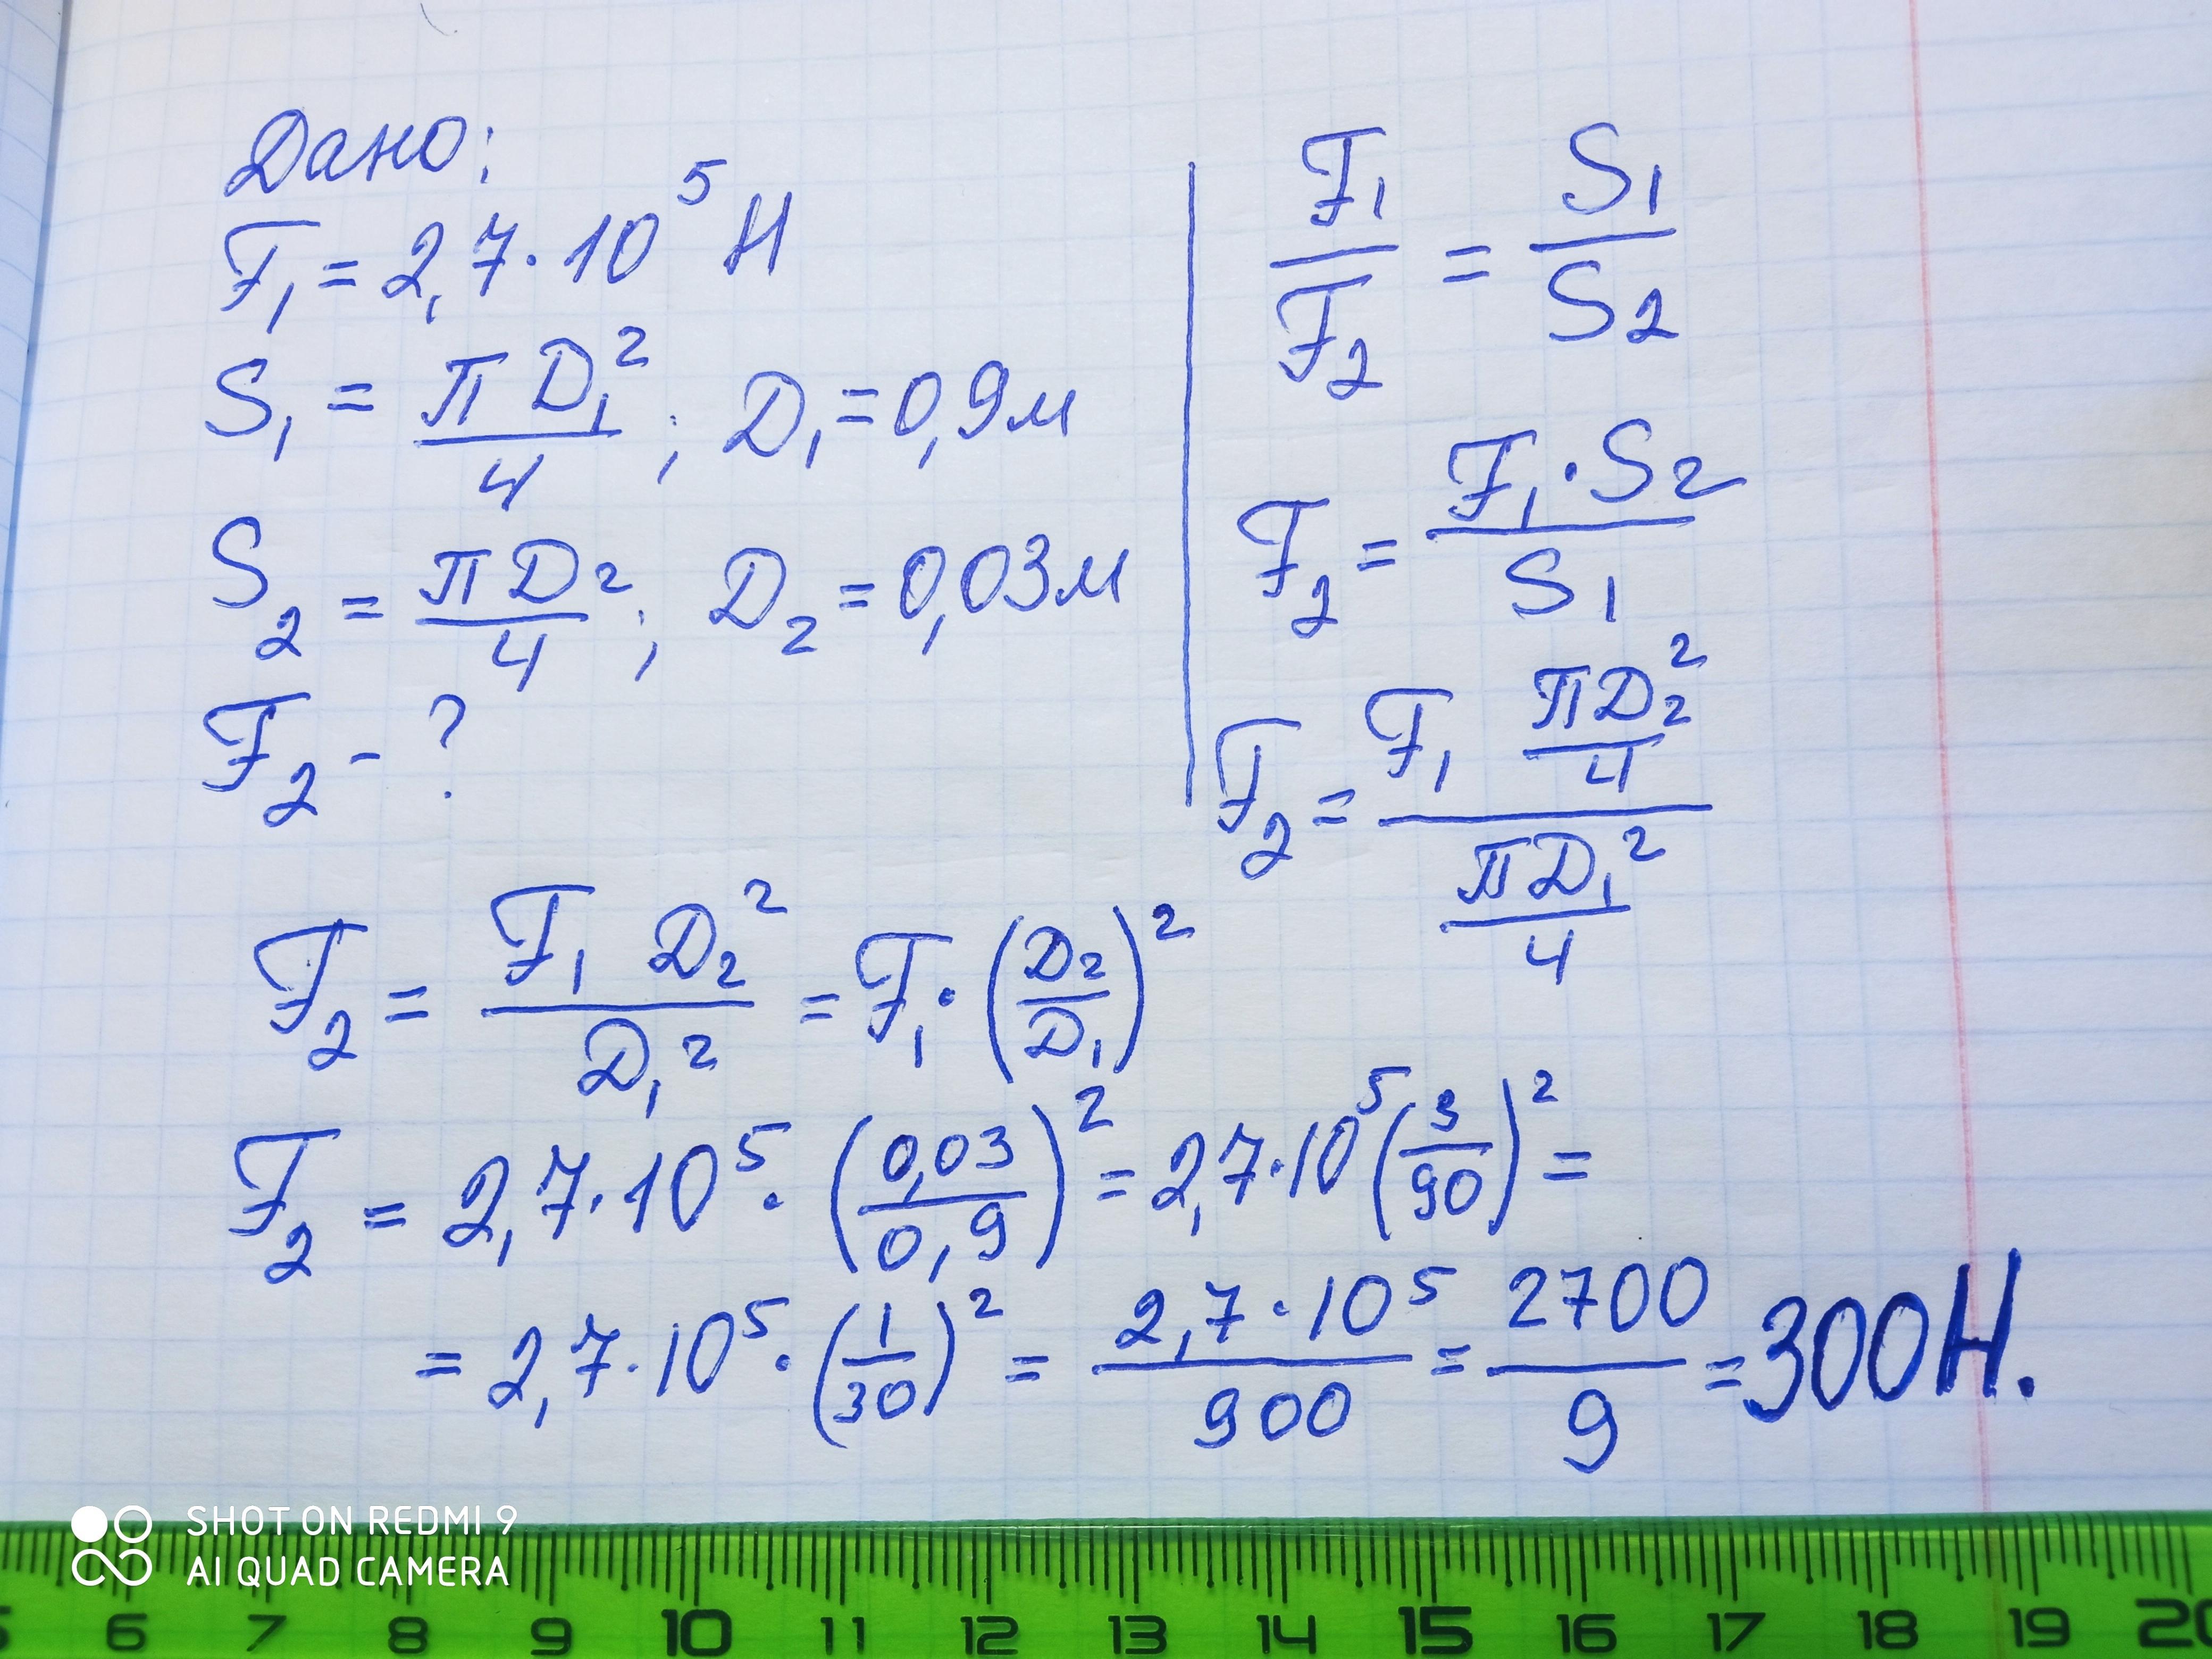 Дано:
F₁ = 2,7·10⁵ Н
S₁ = πD₁²/4 ; D₁ = 0,9м
S₂ = πD²/4 ; D₂ = 0,03м
F₂ - ?
F₁/F₂ = S₁/S₂
F₂ = F₁·S₂/S₁
F₂ = (F₁ πD₂²/4)/(πD₁²/4)
F₂ = F₁ D₂²/D₁² = F₁·(D₂/D₁)²
F₂ = 2,7·10⁵·(0,03/0,9)² = 2,7·10⁵(3/90)² =
= 2,7·10⁵·(1/30)² = 2,7·10⁵/900 = 2700/9 = 300Н.
SHOT ON REDMI 9
AI QUAD CAMERA
6 7 8 9 10 11 12 13 14 15 16 17 18 19 20